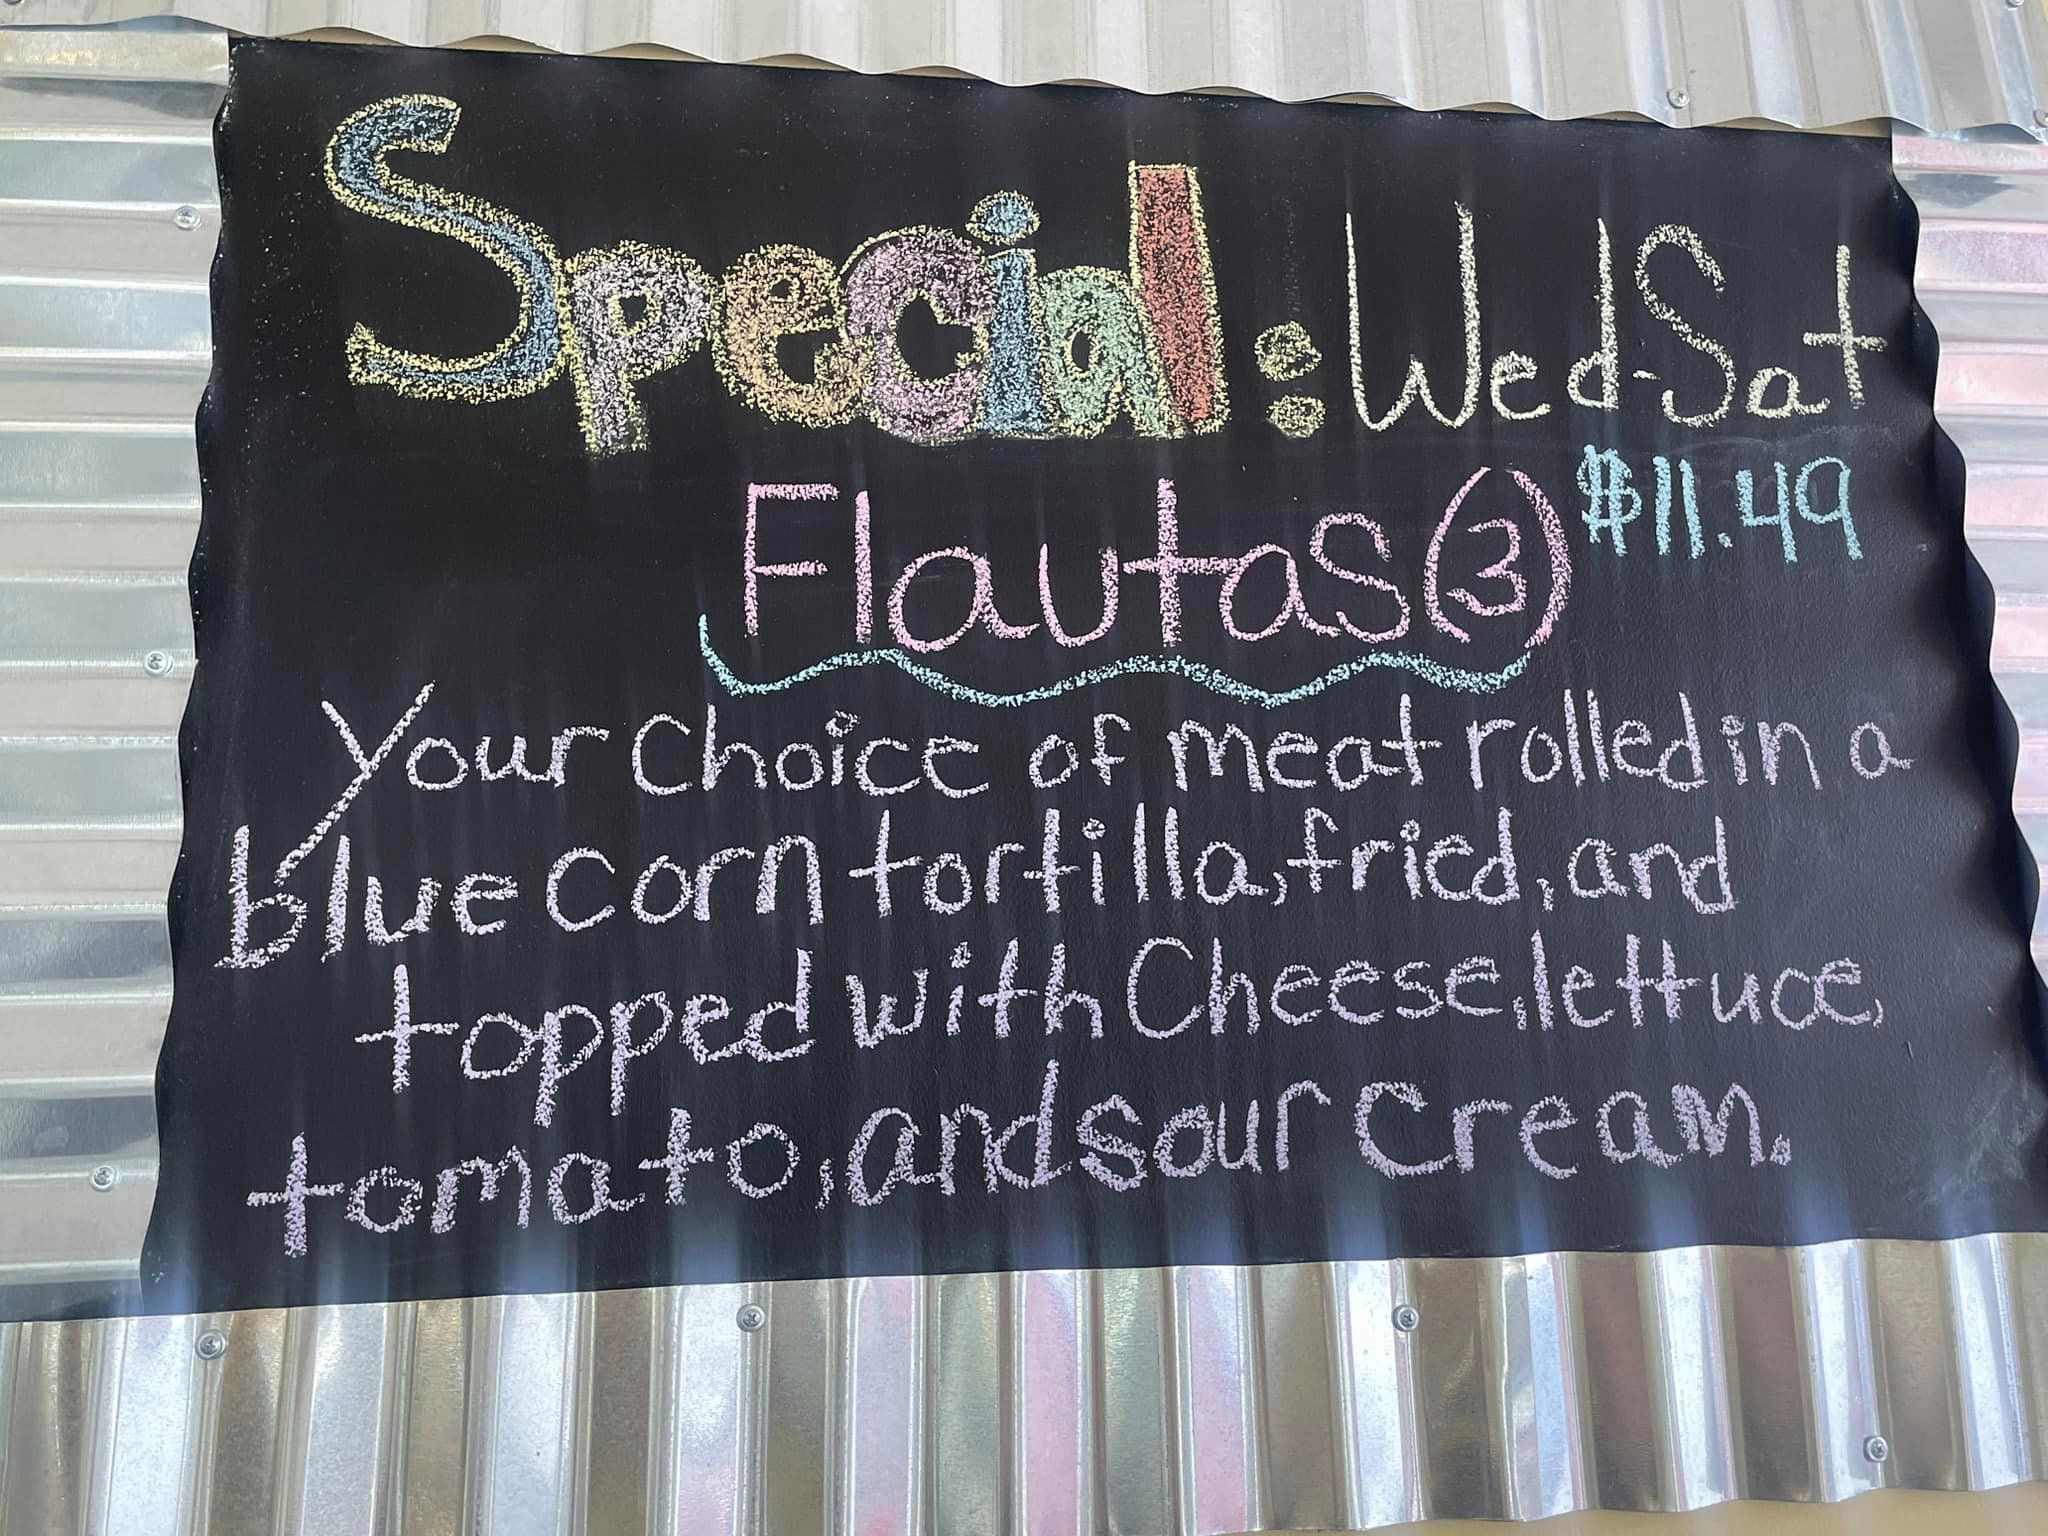 Special: Wed-Sat
$11.49
Flautas (3)
Your choice of meat rolled in a
blue corn tortilla, fried, and
topped with Cheese, lettuce,
tomato, and sour cream.